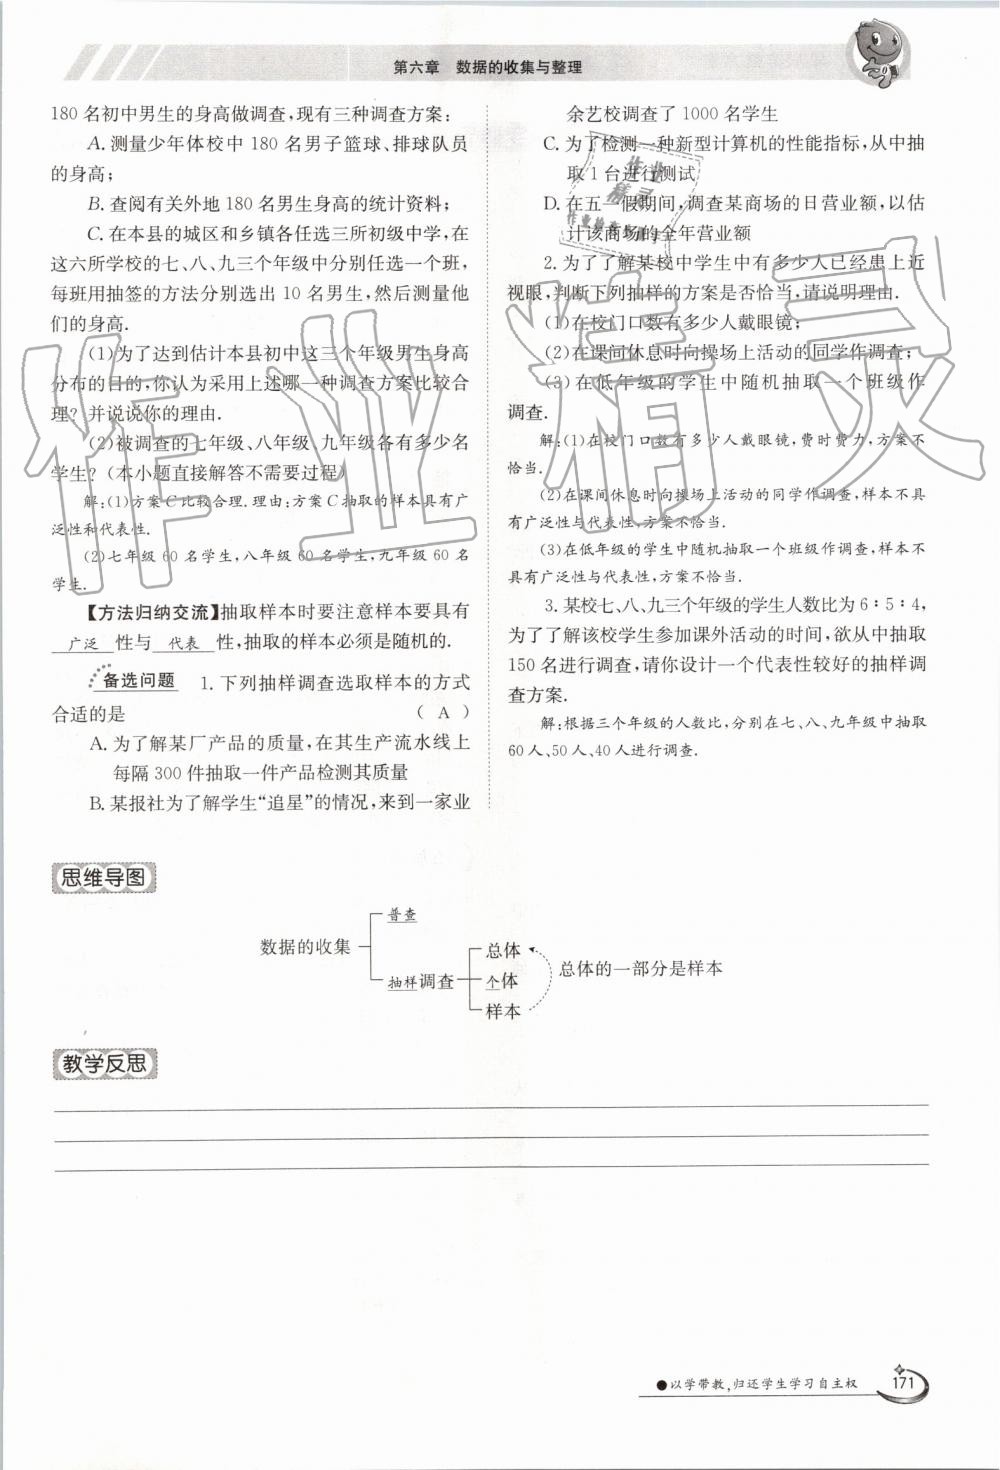 第六章 数据的收集与整理
180名初中男生的身高做调查,现有三种调查方案:
A.测量少年体校中180名男子篮球、排球队员
的身高;
B.查阅有关外地180名男生身高的统计资料;
C.在本县的城区和乡镇各任选三所初级中学,在
这六所学校的七、八、九三个年级中分别任选一个班,
每班用抽签的方法分别选出10名男生,然后测量他
们的身高.
(1)为了达到估计本县初中这三个年级男生身高
分布的目的,你认为采用上述哪一种调查方案比较合
理?并说说你的理由.
(2)被调查的七年级、八年级、九年级各有多少名
学生?(本小题直接解答不需要过程)
解:(1)方案C比较合理.理由:方案C抽取的样本具有广
泛性和代表性.
(2)七年级60名学生,八年级60名学生,九年级60名
学生.
【方法归纳交流】抽取样本时要注意样本要具有
广泛 性与 代表 性,抽取的样本必须是随机的.
备选问题 1.下列抽样调查选取样本的方式
合适的是 ( A )
A.为了解某厂产品的质量,在其生产流水线上
每隔300件抽取一件产品检测其质量
B.某报社为了解学生“追星”的情况,来到一家业
余艺校调查了1000名学生
C.为了检测一种新型计算机的性能指标,从中抽
取1台进行测试
D.在五一假期间,调查某商场的日营业额,以估
计该商场的全年营业额
2.为了了解某校中学生中有多少人已经患上近
视眼,判断下列抽样的方案是否恰当,请说明理由.
(1)在校门口数有多少人戴眼镜;
(2)在课间休息时向操场上活动的同学作调查;
(3)在低年级的学生中随机抽取一个班级作
调查.
解:(1)在校门口数有多少人戴眼镜,费时费力,方案不
恰当.
(2)在课间休息时向操场上活动的同学作调查,样本不具
有广泛性与代表性,方案不恰当.
(3)在低年级的学生中随机抽取一个班级作调查,样本不
具有广泛性与代表性,方案不恰当.
3.某校七、八、九三个年级的学生人数比为6∶5∶4,
为了了解该校学生参加课外活动的时间,欲从中抽取
150名进行调查,请你设计一个代表性较好的抽样调
查方案.
解:根据三个年级的人数比,分别在七、八、九年级中抽取
60人、50人、40人进行调查.
思维导图
数据的收集
普查
抽样调查
总体
个体
样本
总体的一部分是样本
教学反思
●以学带教,归还学生学习自主权
171
作业精灵